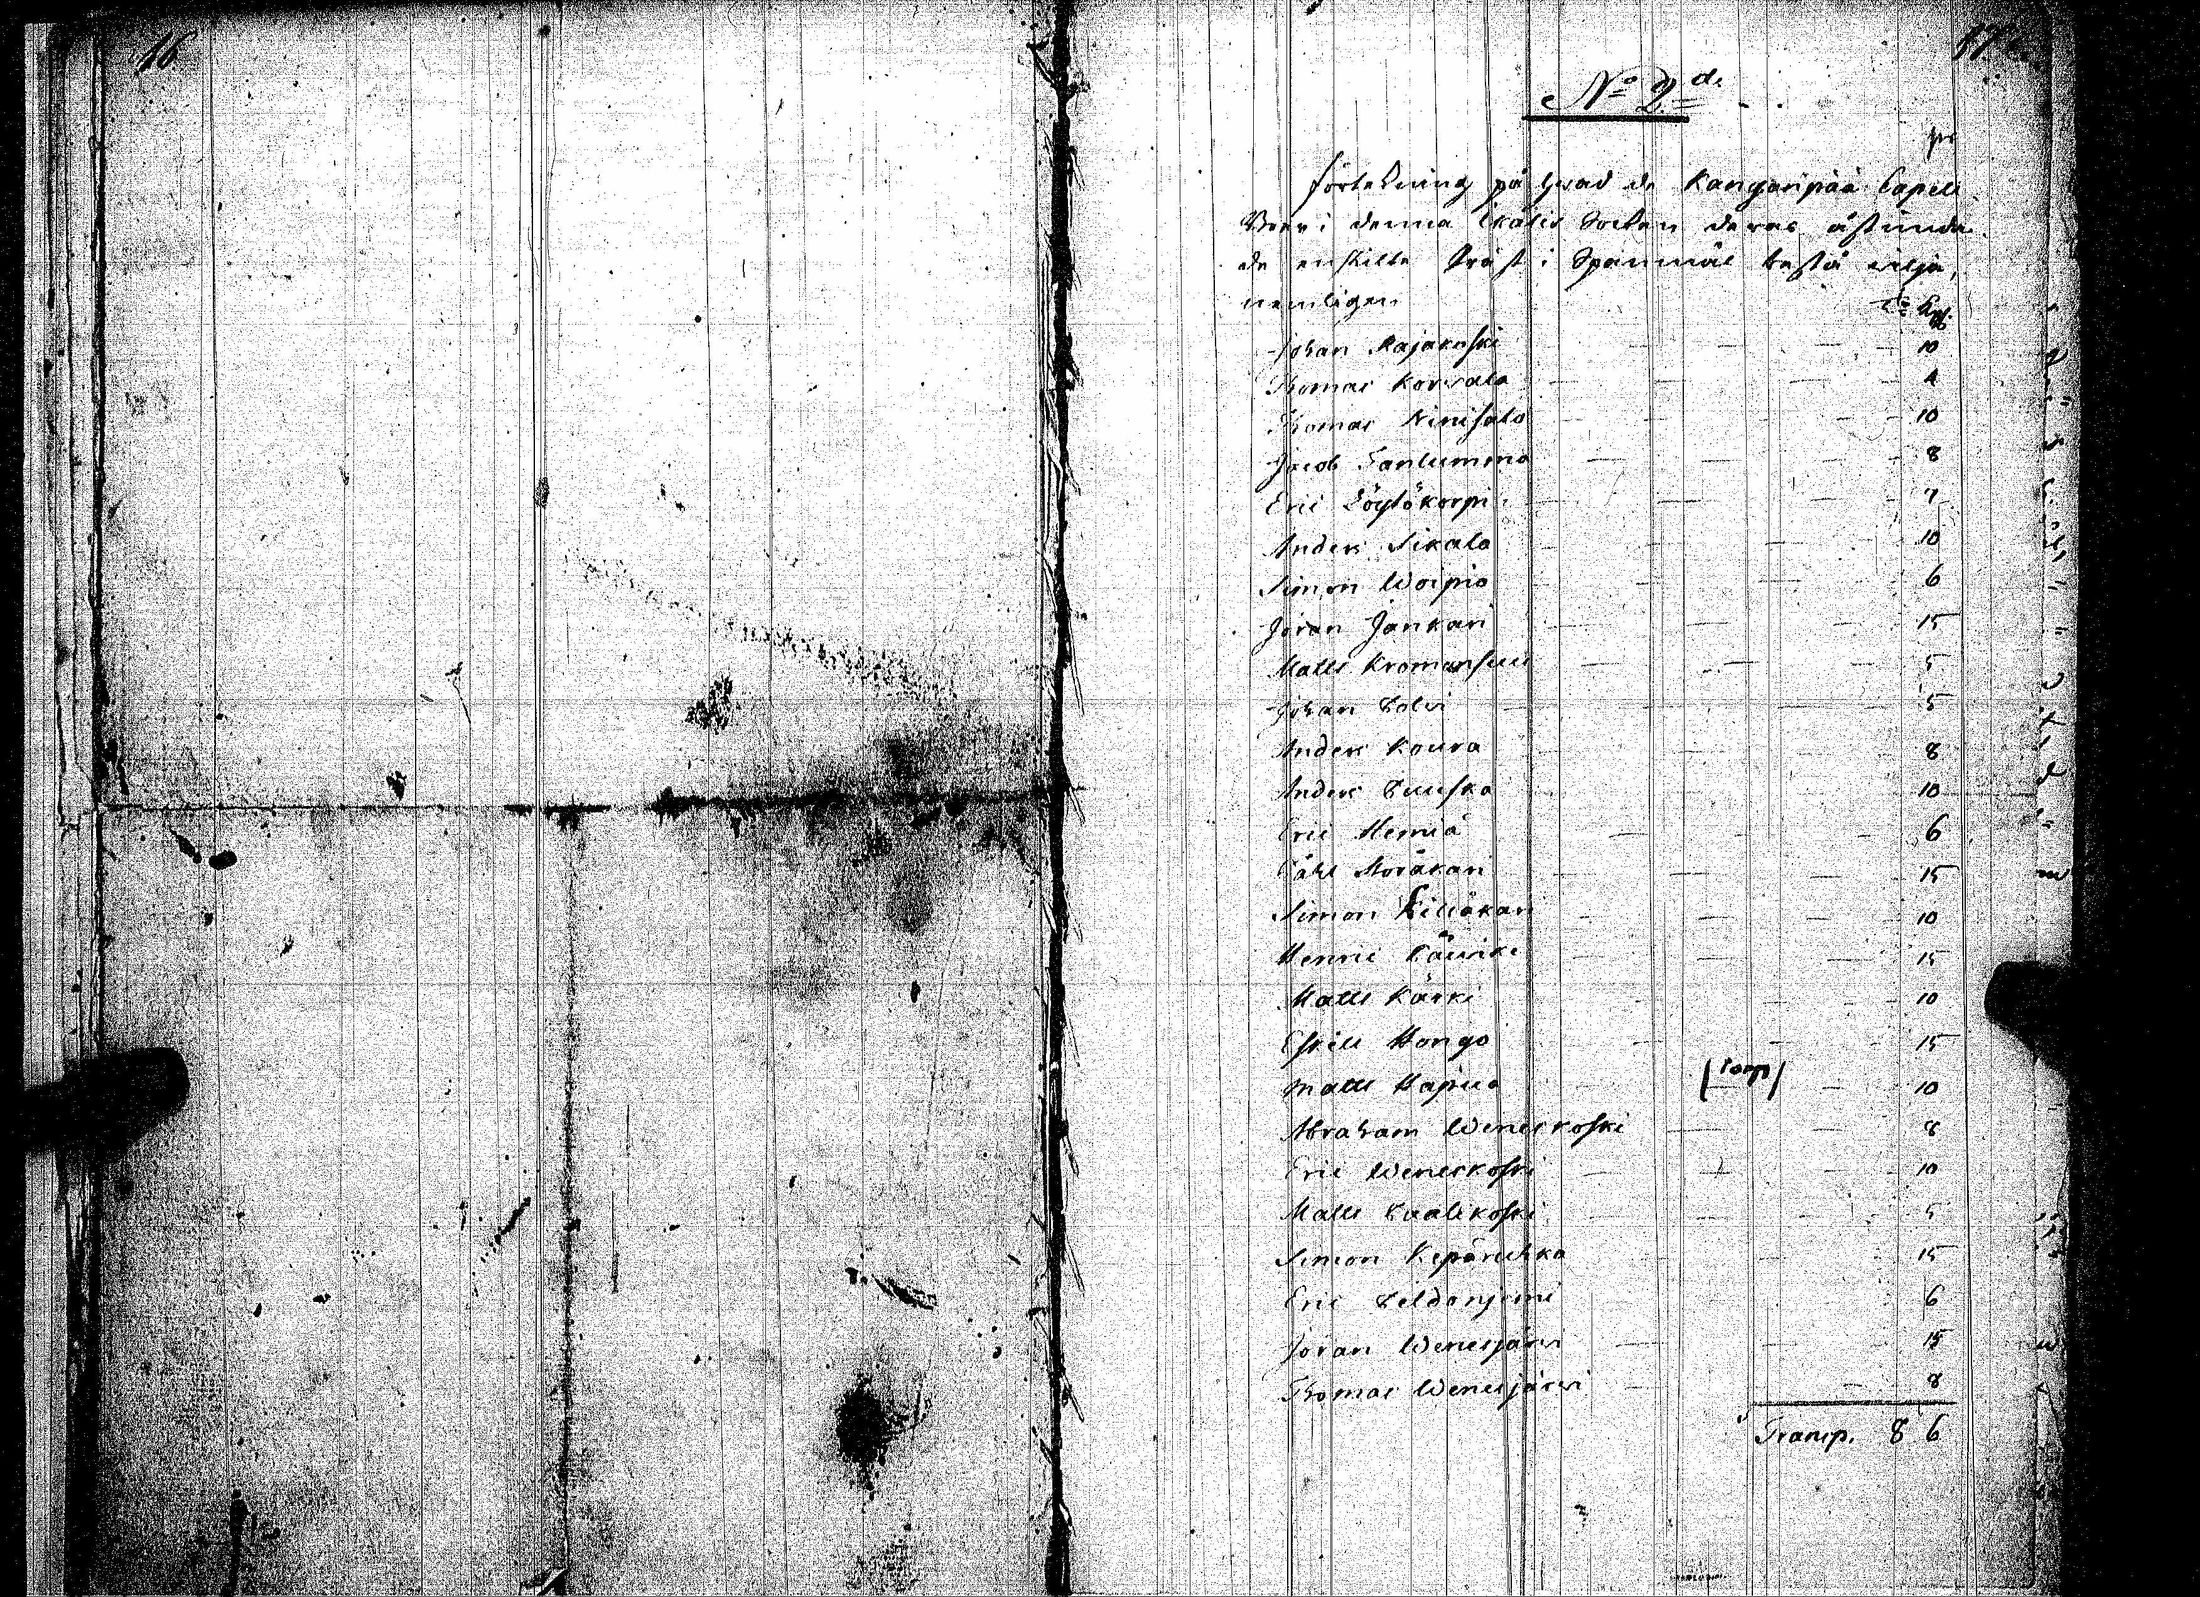 16
17
No 2de
förtekning på hvad de Kanganpää Capell
Boer i denna Ikalis Socken deras åstunda
de enskilte Präst i Spanmål bestå wilja,
nemligen Kpr
Johan Rajakoski 10
Thomas Korvala 4
Thomas Ninisalo 10
Jacob Santumma 8
Eric Löytökorpi 7
Anders Sikala 10
Simon Woipio 6
Jöran Jankari 15
Matts Kromansuu 5
Johan Tolvi 5
Anders Koura 8
Anders Tuuska 10
Eric Hemiä 6
Påhl Moräkari 15
Simon Killäkari 10
Henric Käwike 15
Matts Kärki 10
Eskill Hongo 15
Matts Hapua 10
Abraham Weneskoski 8
Eric Weneskoski 10
Matts Kaalikoski 5
Simon Kepänuhka 15
Eric Teldanjemi 6
Jöran Wenesjärvi 15
Thomas Wenesjärvi 8
Transp. 8 6